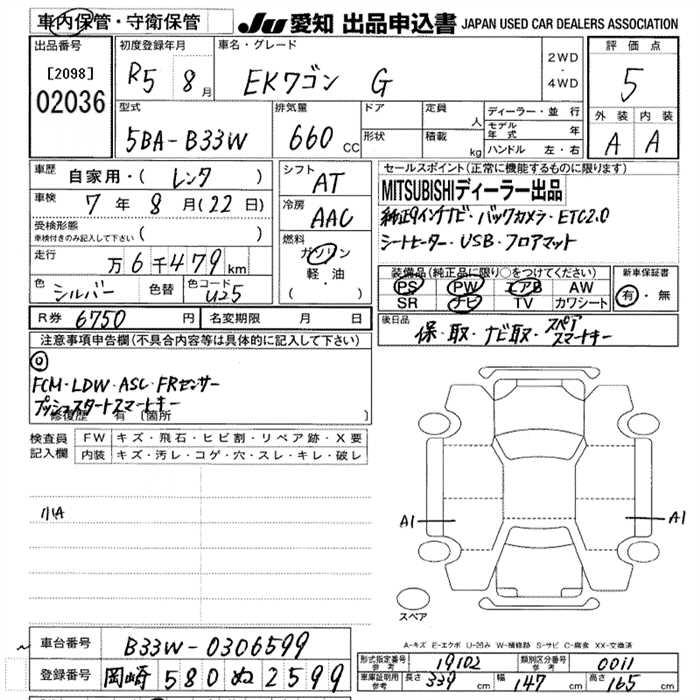 車内保管・守衛保管 JU 愛知 出品申込書 JAPAN USED CAR DEALERS ASSOCIATION
出品番号 [2098] 02036
初度登録年月 R5 8月
車名・グレード EKワゴン G
2WD・4WD
評価点 5
外装 A 内装 A
型式 5BA-B33W
排気量 660 CC
ドア 形状
定員 人 積載 kg
ディーラー・並行
モデル年式 年
ハンドル 左・右
車歴 自家用・( レンタ )
車検 7年 8月(22日)
受検形態 車検付きのみ記入して下さい ( )
走行 万6千479km
色 シルバー 色替 色コード U25
シフト AT
冷房 AAC
燃料 ガソリン 軽油 ( )
セールスポイント(正常に機能するものに限ります)
MITSUBISHIディーラー出品
純正9インチナビ・バックカメラ・ETC2.0
シートヒーター・USB・フロアマット
装備品(純正品に限り○をつけてください)
PS PW エアB AW
SR ナビ TV カワシート
新車保証書 有・無
R券 6750円 名変期限 月 日
後日品 保・取・ナビ取・スペアスマートキー
注意事項申告欄(不具合内容等は具体的に記入して下さい)
FCM・LDW・ASC・FRセンサー
プッシュスタートスマートキー
修復歴 有 [箇所 ]
検査員記入欄 FW キズ・飛石・ヒビ割・リペア跡・X要
内装 キズ・汚レ・コゲ・穴・スレ・キレ・破レ
A1 A1
スペア
A-キズ E-エクボ U-凹み W-補修跡 S-サビ C-腐食 XX-交換済
車台番号 B33W-0306599
登録番号 岡崎 580 ぬ 2599
形式指定番号 参考 19102 類別区分番号 参考 0011
車庫証明用 参考 長さ 339 cm 幅 147 cm 高さ 165 cm